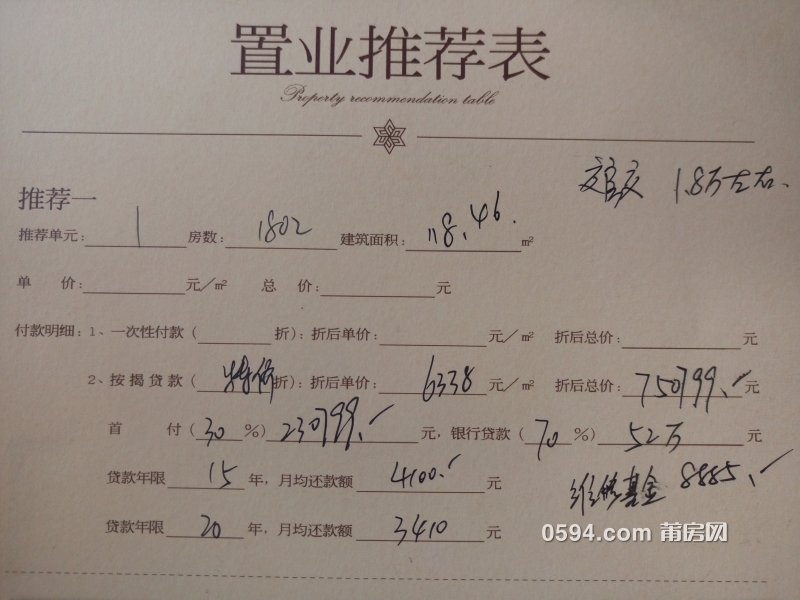 置业推荐表
Property recommendation table
1.8万左右.
推荐一
推荐单元: 1 房数: 1802 建筑面积: 118.46. m²
单 价: 元/m² 总 价: 元
付款明细: 1、一次性付款( 折): 折后单价: 元/m² 折后总价: 元
2、按揭贷款(特价折): 折后单价: 6338 元/m² 折后总价: 750799. 元
首 付(30%) 230799. 元, 银行贷款(70%) 52万 元
贷款年限 15 年, 月均还款额 4100. 元
维修基金 8885.
贷款年限 20 年, 月均还款额 3410 元
0594.com 莆房网